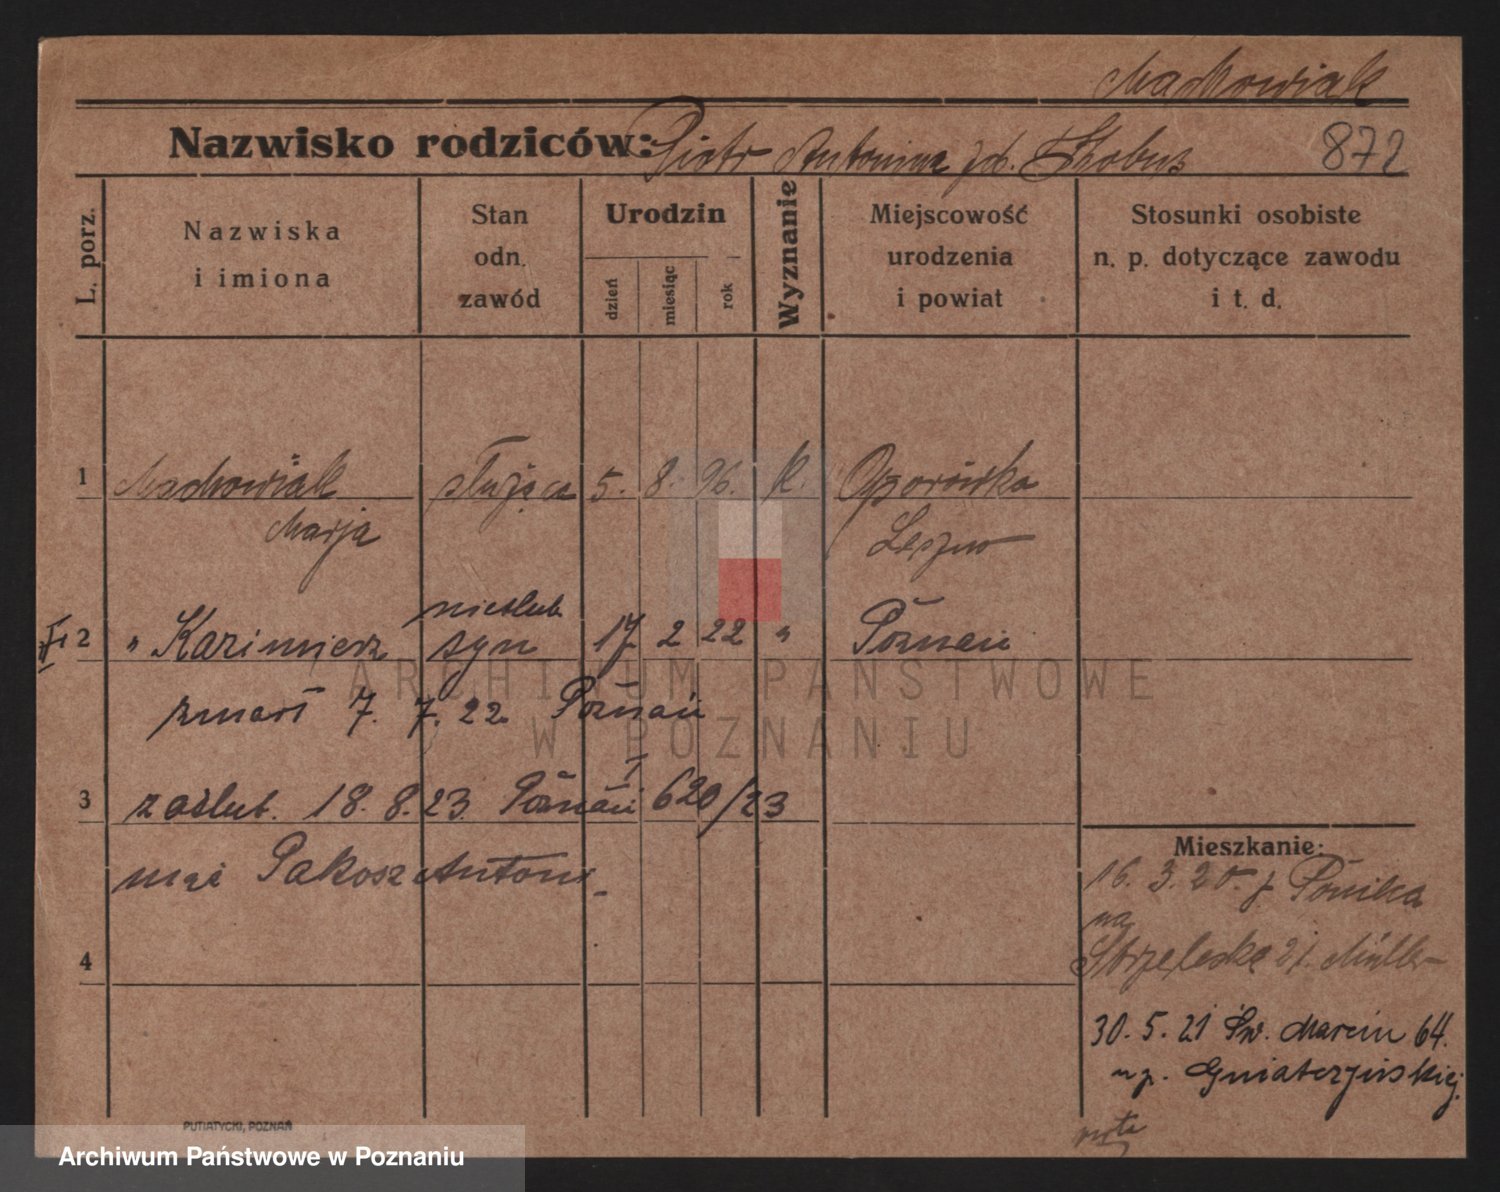 Maćkowiak
Nazwisko rodziców: Piotr Antonina
872
L. porz.
Nazwiska
i imiona
Stan
odn.
zawód
Urodzin
dzień
miesiąc
rok
Wyznanie
Miejscowość
urodzenia
i powiat
Stosunki osobiste
n. p. dotyczące zawodu
i t. d.
1 Maćkowiak służąca 5. 8. 96. k. Oporówka
Marja Leszno
nieślub
2 " Kazimierz syn 17 2 22 " Poznań
zmarł 7. 7. 22. Poznań
I
3 zaślub. 18. 8. 23. Poznań 620/23
mąż Pakosz Antoni
4
Mieszkanie:
16. 3. 20.
na
Strzelecka 21.
30. 5. 21 Św. Marcin 64.
PUTIATYCKI, POZNAŃ
ARCHIWUM PAŃSTWOWE
W POZNANIU
Archiwum Państwowe w Poznaniu